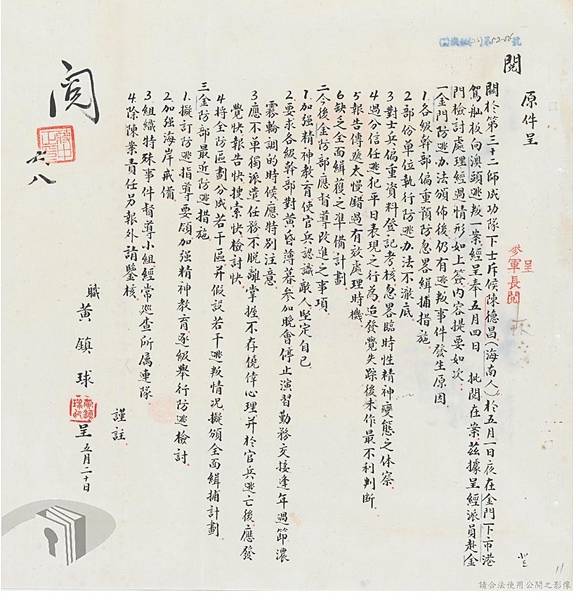 閱
原件呈
呈
參軍長閱
關於第三十二師成功隊下士斥候陳德昌(海南人)於五月一日夜在金門下市港
駕舢板向澳頭逃叛一案經呈奉五月四日 批閱在案茲據呈經派員赴金
門檢討處理經過情形如上簽內容提要如次:
一金門防逃办法頒佈後仍有逃叛事件發生原因
1.各級幹部偏重預防忽畧緝捕措施
2.部份单位執行防逃办法不澈底
3.對士兵偏重資料登記考核忽畧臨時性精神變態之体察
4.過分信任逃犯平日表現之行為迨發覺失踪後未作最不利判断
5.報告傳遞太慢錯過有效處理時機
6.缺乏全面緝獲之準備計劃
二今後金防部應督導改進之事項
1.加強精神教育使官兵認識敵人堅定自己
2.要求各級幹部對黃昏薄暮參加晚會停止演習勤務交接逢年過節濃
霧輪調的時候應特別注意
3.應不单獨派遣任務不脫離掌握不存僥倖心理并於官兵逃亡後應發
覺快報告快搜索快檢討快
4.將全防區劃分成若干區并假設若干逃叛情况擬頒全面緝捕計劃
三金防部最近防逃措施
1.擬訂防逃指導要領加強精神教育逐級舉行防逃檢討
2.加強海岸戒備
3.組織特殊事件督導小組經常巡查所屬連隊
4.除陳案責任另報外請鑒核
謹註
職 黃鎮球 呈 五月二十日
閱
六八
11
請合法使用公開之影像